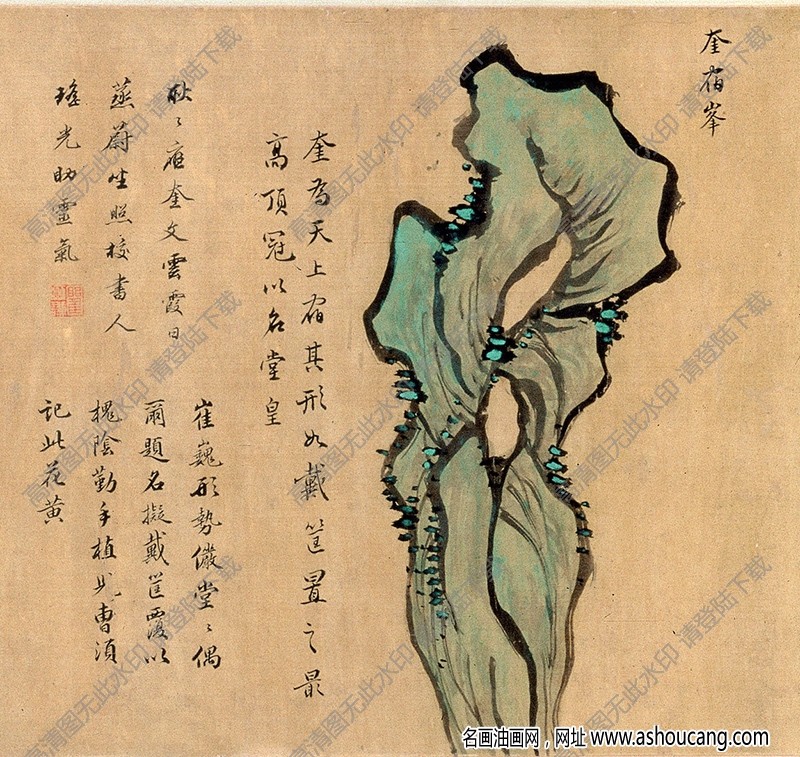 奎宿峯
奎為天上宿其形如戴筐置之最
高頂冠以名堂皇
崔巍形勢儼堂〻偶
爾題名擬戴筐覆以
槐陰勤手植兒曹須
記此花黃
耿〻應奎文雲霞日
蒸蔚坐照校書人
瑤光助靈氣
高清图无此水印 请登陆下载
名画油画网，网址 www.ashoucang.com